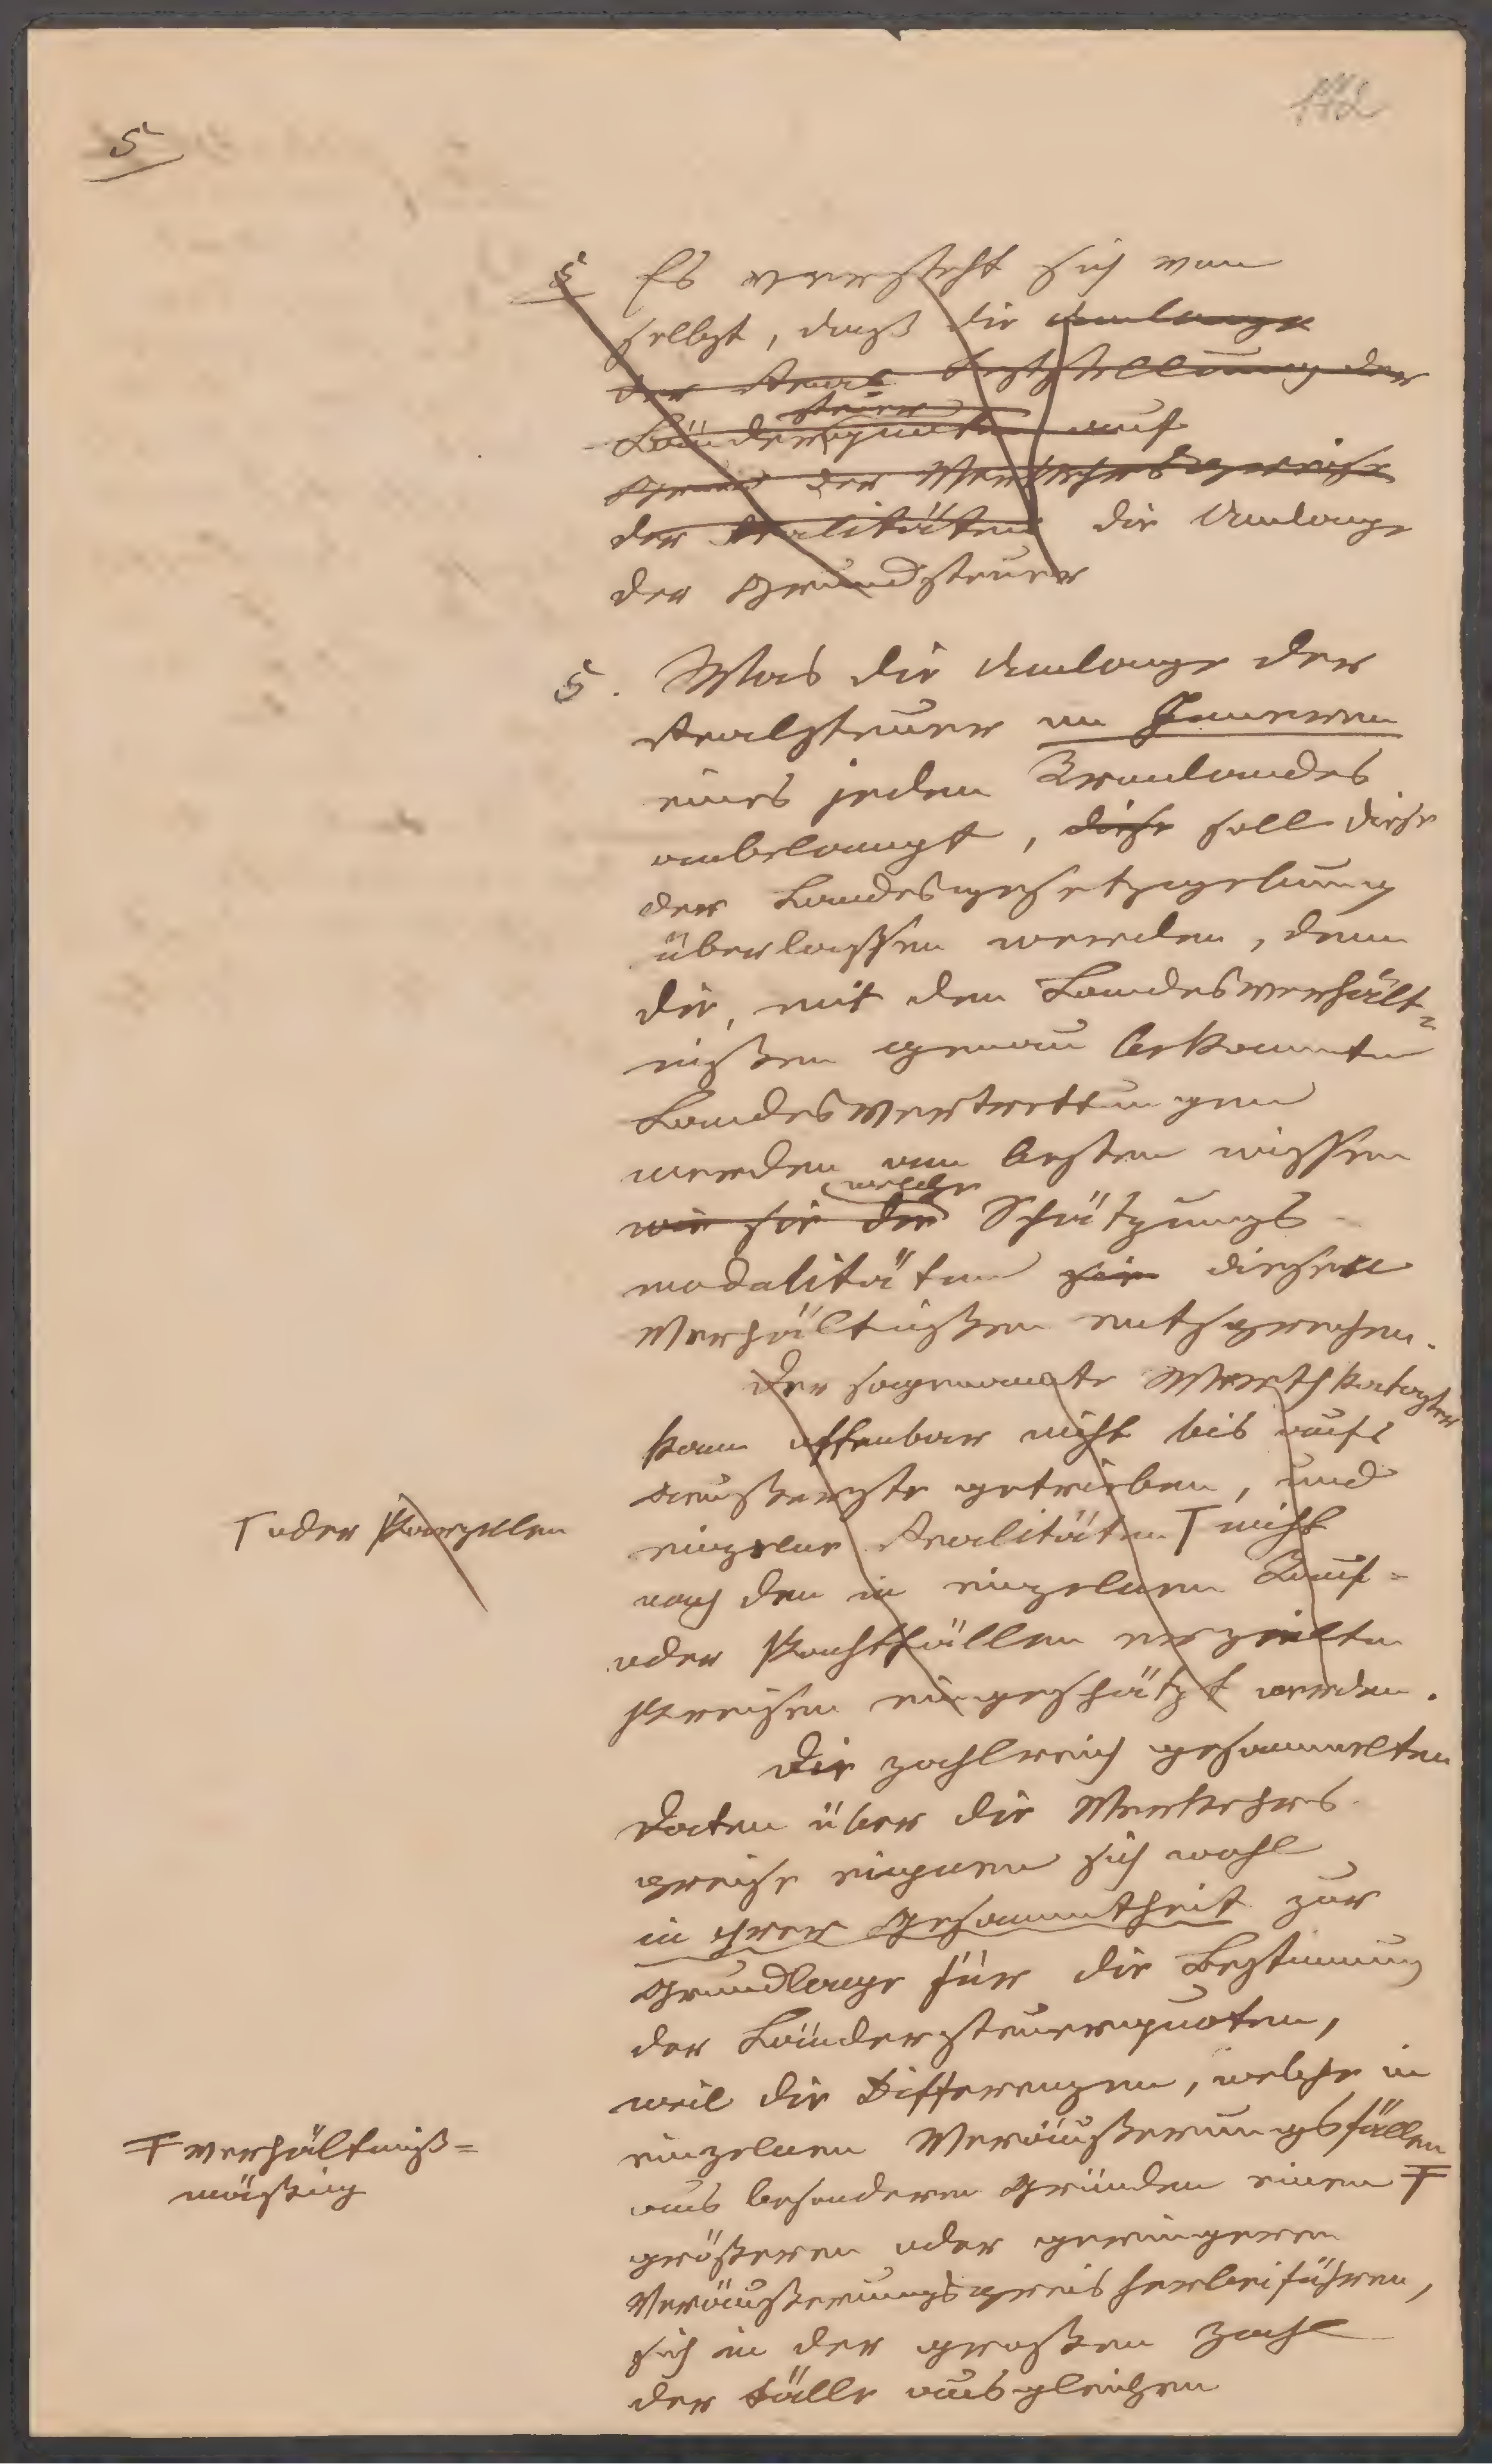 5
142
5 Es versteht sich von
selbst, daß die Umlage
der Real Feststellung der
steuer
Länderquoten auf
Grund der Verkehrspreise
der Realitäten die Umlage
der Grundsteuer
5. Was die Umlage der
Realsteuer im Inneren
eines jeden Kronlandes
anbelangt, diese soll diese
der Landesgesetzgebung
überlassen werden, denn
die, mit den Landesverhält=
nißen genau bekannten
Landesvertrettungen
werden am besten wissen
welche
wie sie die Schätzungs-
modalitäten sein diesen
Verhältnißen entsprechen.
Der sogenannte Werthkataster
kann offenbar nicht bis aufs
äußerste getrieben, und
⊤ oder Parzellen
einzelne Realitäten ⊤ nicht
nach den in einzelnen Kauf=
oder Pachtfällen erzielten
Preisen eingeschätzt werden.
Die zahlreich gesammelten
Daten über die Verkehrs-
preise eignen sich wohl
in ihrer Gesammtheit zur
Grundlage für die Bestimmung
der Ländersteuerquoten,
weil die Differenzen, welche in
einzelnen Veräußerungsfällen
Ŧ verhältniß=
mäßig
aus besonderen Gründen einen Ŧ
größeren oder geringeren
Veräußerungspreis herbeiführen,
sich in der großen Zahl
der Fälle ausgleichen